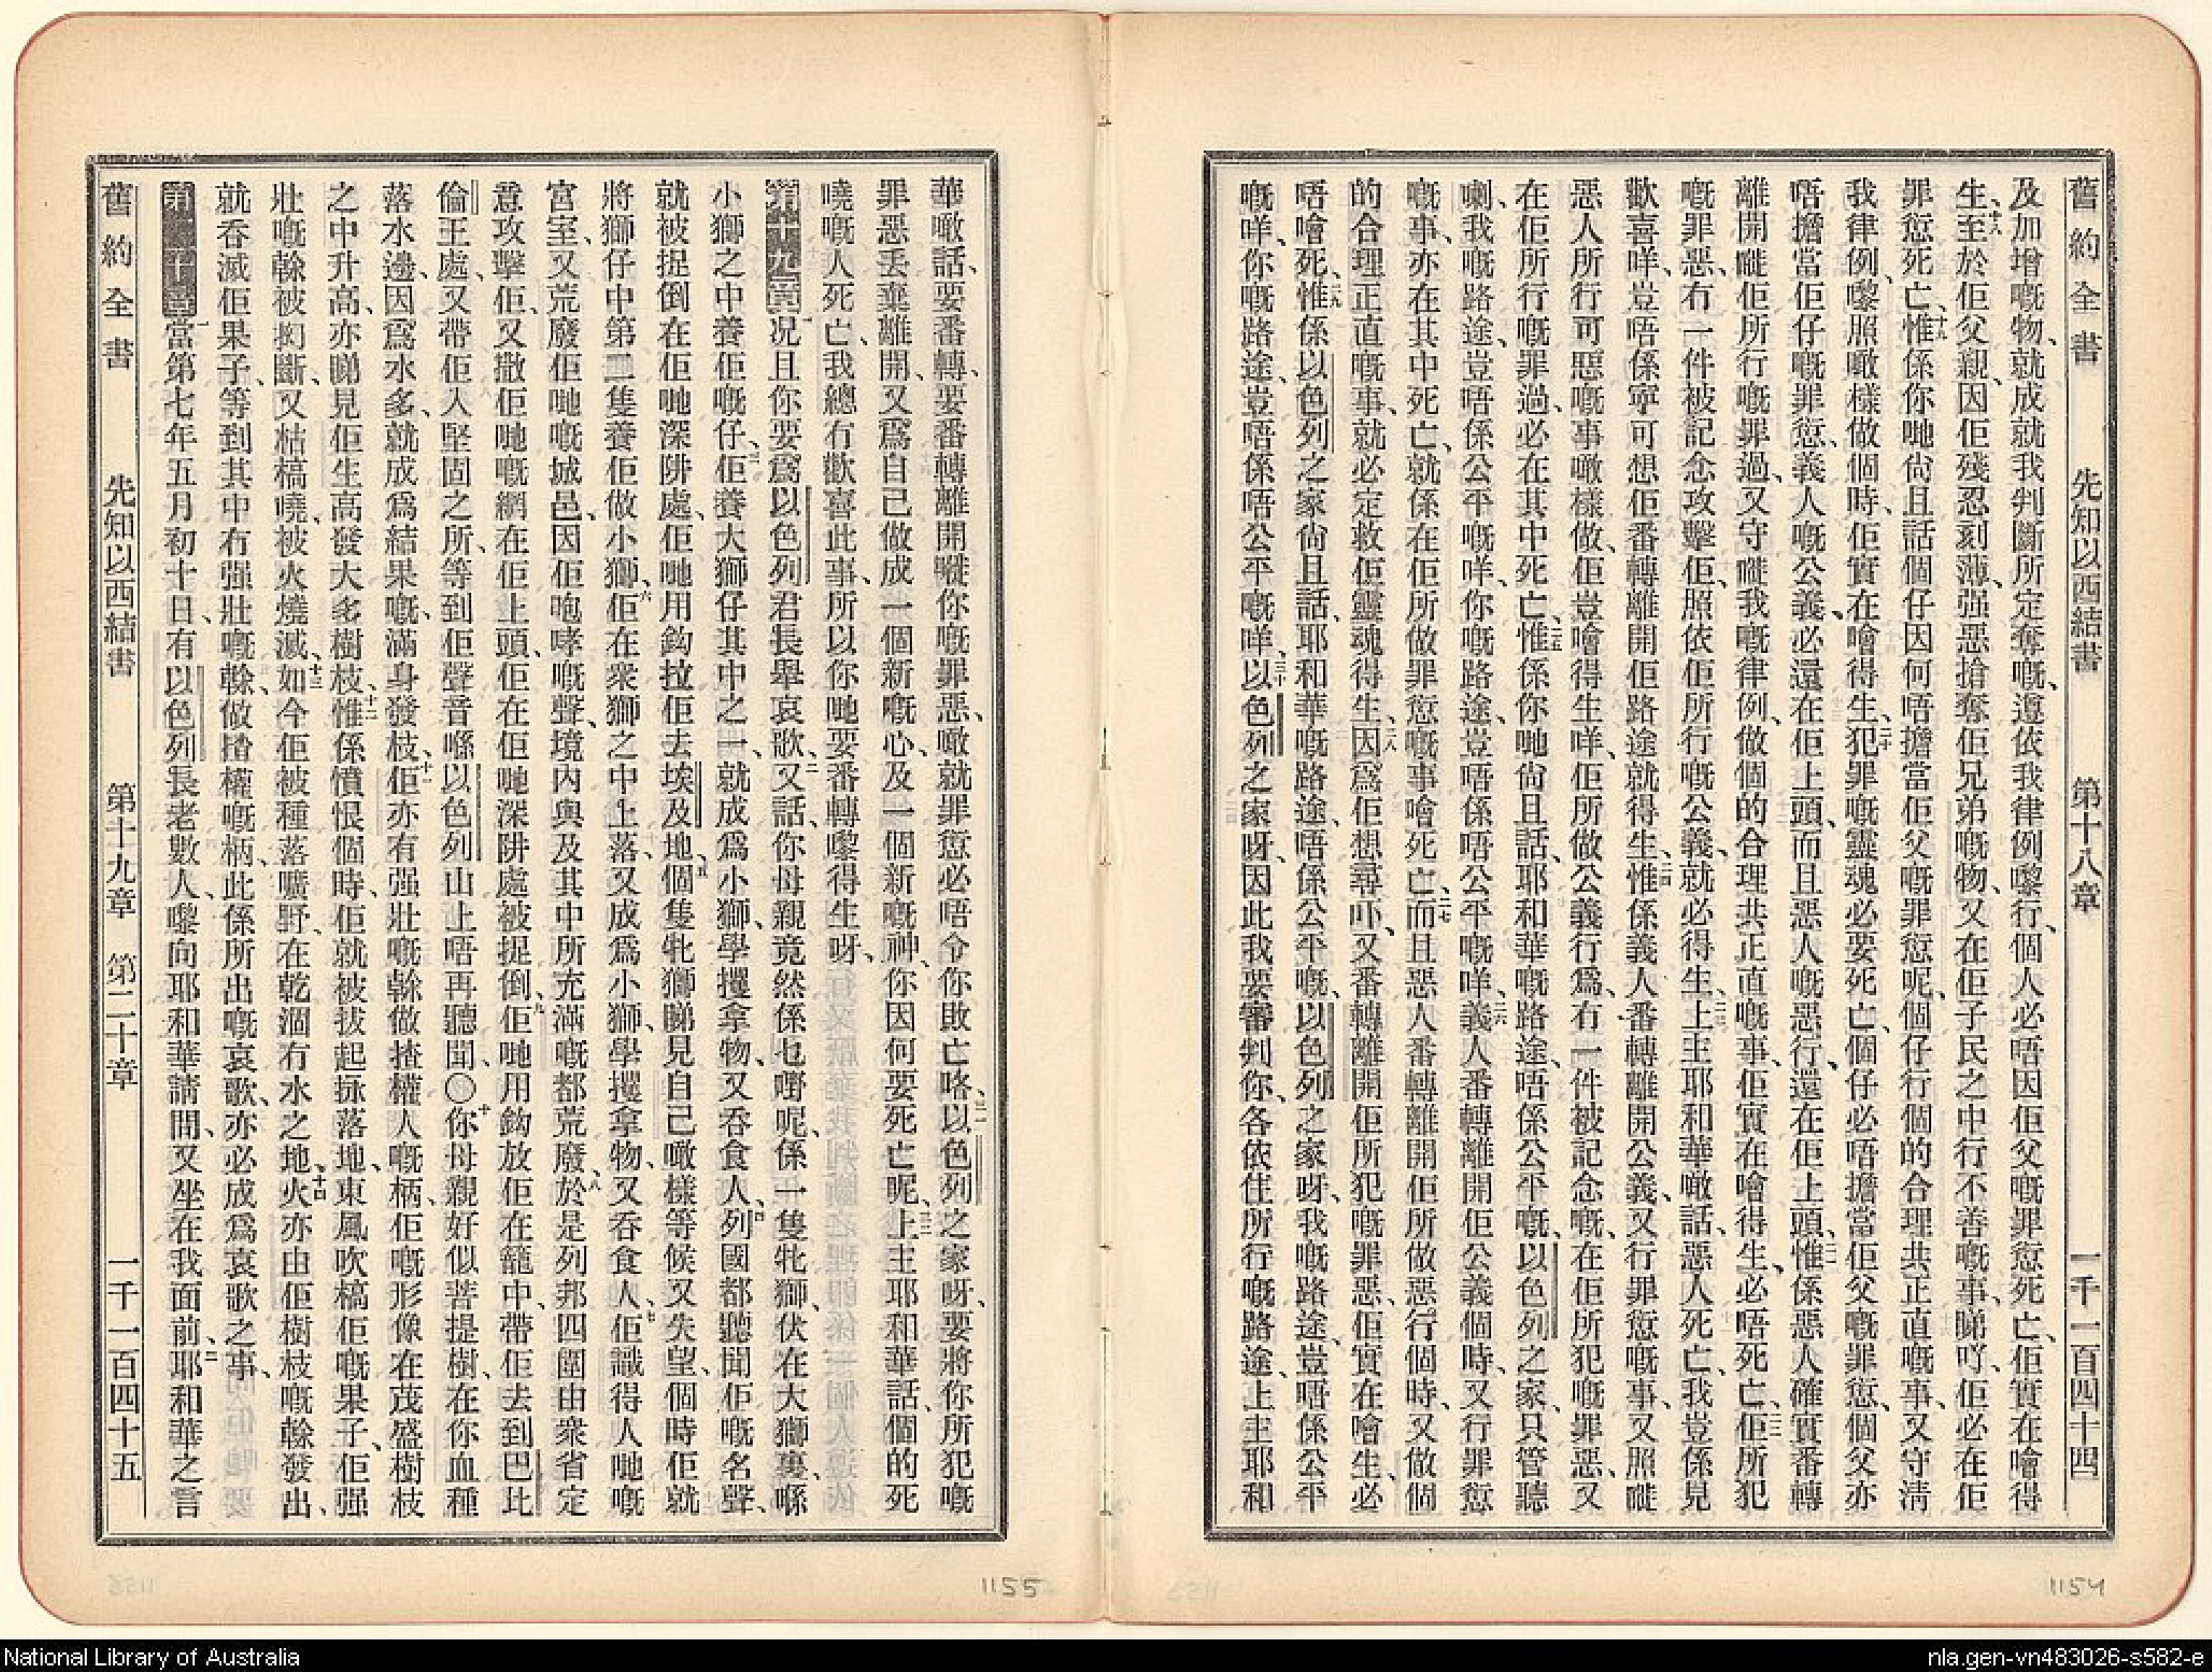 舊約全書　先知以西結書　第十八章　一千一百四十四
及加增嘅物、就成就我判斷所定奪嘅、遵依我律例嚟行、個人必唔因佢父嘅罪愆死亡、佢實在噲得
生、十八至於佢父親、因佢殘忍刻薄、强惡搶奪佢兄弟嘅物、又在佢子民之中行不善嘅事、睇吓、佢必在佢
罪愆死亡、十九惟係你哋尙且話、個仔因何唔擔當佢父嘅罪愆呢、個仔行個的合理共正直嘅事、又守淸
我律例、嚟照噉樣做個時、佢實在噲得生、二十犯罪嘅靈魂必要死亡、個仔必唔擔當佢父嘅罪愆、個父亦
唔擔當佢仔嘅罪愆、義人嘅公義、必還在佢上頭、而且惡人嘅惡行、還在佢上頭、二一惟係惡人確實番轉
離開嚡佢所行嘅罪過、又守嚡我嘅律例、做個的合理共正直嘅事、佢實在噲得生、必唔死亡、二二佢所犯
嘅罪惡、冇一件被記念攻擊佢、照依佢所行嘅公義、就必得生、二三上主耶和華噉話、惡人死亡、我豈係見
歡喜咩、豈唔係寧可想佢番轉離開佢路途就得生、二四惟係義人番轉離開公義、又行罪愆嘅事、又照嚡
惡人所行可惡嘅事噉樣做、佢豈噲得生咩、佢所做公義行爲、冇一件被記念嘅、在佢所犯嘅罪惡、又
在佢所行嘅罪過、必在其中死亡、二五惟係你哋尙且話、耶和華嘅路途、唔係公平嘅、以色列之家、只管聽
喇、我嘅路途、豈唔係公平嘅咩、你嘅路途、豈唔係唔公平嘅咩、二六義人番轉離開佢公義個時、又行罪愆
嘅事、亦在其中死亡、就係在佢所做罪愆嘅事噲死亡、二七而且惡人番轉離開佢所做惡行個時、又做個
的合理正直嘅事、就必定救佢靈魂得生、二八因爲佢想尋吓、又番轉離開佢所犯嘅罪惡、佢實在噲生、必
唔噲死、二九惟係以色列之家尙且話、耶和華嘅路途、唔係公平嘅、以色列之家呀、我嘅路途、豈唔係公平
嘅咩、你嘅路途、豈唔係唔公平嘅咩、三十以色列之家呀、因此我要審判你、各依住所行嘅路途、上主耶和
華噉話、要番轉、要番轉離開嚡你嘅罪惡、噉就罪愆必唔令你敗亡咯、三一以色列之家呀、要將你所犯嘅
罪惡丟棄離開、又爲自己做成一個新嘅心、及一個新嘅神、你因何要死亡呢、三二上主耶和華話、個的死
嘵嘅人死亡、我總冇歡喜此事、所以你哋要番轉嚟得生呀、
第十九章　一況且你要爲以色列君長舉哀歌、二又話、你母親竟然係乜嘢呢、係一隻牝獅、伏在大獅裏、喺
小獅之中養佢嘅仔、三佢養大獅仔其中之一、就成爲小獅、學攫拿物、又吞食人、四列國都聽聞佢嘅名聲、
就被捉倒在佢哋深阱處、佢哋用鈎拉佢去埃及地、五個隻牝獅睇見自己噉樣等候又失望、個時佢就
將獅仔中第二隻養佢做小獅、六佢在衆獅之中上落、又成爲小獅、學攫拿物、又吞食人、七佢識得人哋嘅
宮室、又荒廢佢哋嘅城邑、因佢咆哮嘅聲、境內與及其中所充滿嘅都荒廢、八於是列邦四圍由衆省定
意攻擊佢、又撒佢哋嘅網在佢上頭、佢在佢哋深阱處被捉倒、九佢哋用鈎放佢在籠中、帶佢去到巴比
倫王處、又帶佢入堅固之所、等到佢聲音喺以色列山上唔再聽聞、〇十你母親好似菩提樹、在你血種
落水邊、因爲水多、就成爲結果嘅、滿身發枝、十一佢亦有强壯嘅榦做揸權人嘅柄、佢嘅形像在茂盛樹枝
之中升高、亦睇見佢生高發大多樹枝、十二惟係憤恨個時、佢就被拔起拯落地、東風吹槁佢嘅果子、佢强
壯嘅榦被抝斷、又枯槁嘵、被火燒滅、十三如今佢被種落曠野、在乾涸冇水之地、十四火亦由佢樹枝嘅榦發出、
就吞滅佢果子、等到其中冇强壯嘅榦、做揸權嘅柄、此係所出嘅哀歌、亦必成爲哀歌之事、
第二十章　一當第七年五月初十日、有以色列長老數人、嚟向耶和華請問、又坐在我面前、二耶和華之言
舊約全書　先知以西結書　第十九章　第二十章　一千一百四十五
1155
1154
National Library of Australia
nla.gen-vn483026-s582-e